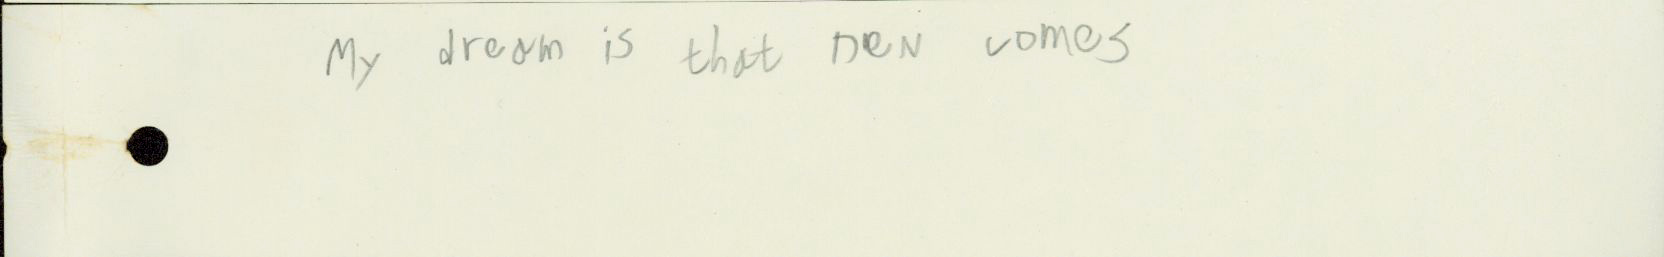 My dream is that Den comes